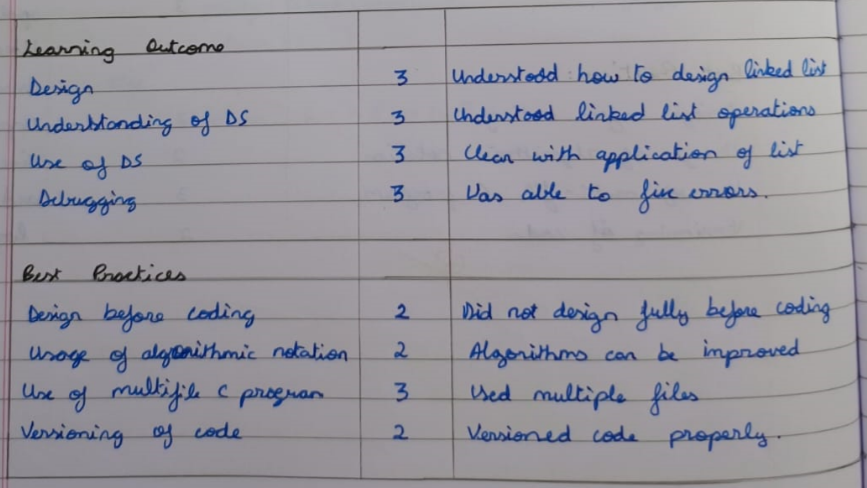 Learning Outcome
Design 3 Understood how to design linked list
Understanding of DS 3 Understood linked list operations
Use of DS 3 Clear with application of list
Debugging 3 Was able to fix errors.
Best Practices
Design before coding 2 Did not design fully before coding
Usage of algorithmic notation 2 Algorithms can be improved
Use of multifile C program 3 Used multiple files
Versioning of code 2 Versioned code properly.